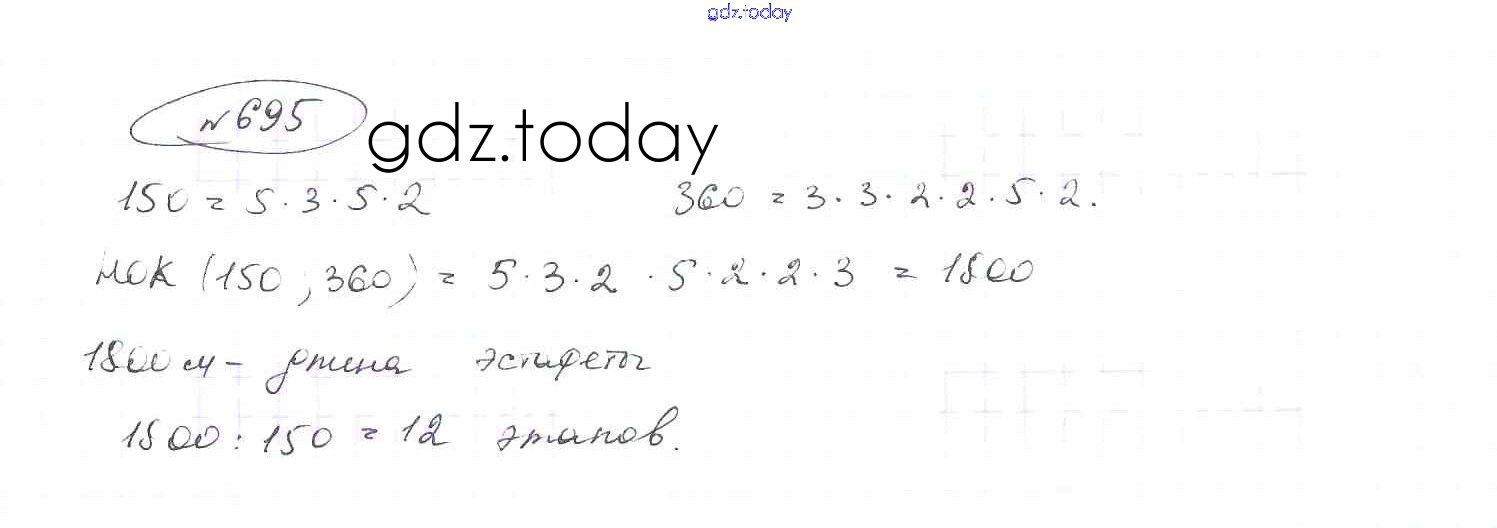 gdz.today
№695
gdz.today
150 = 5·3·5·2 360 = 3·3·2·2·5·2.
НОК (150; 360) = 5·3·2·5·2·2·3 = 1800
1800 м - длина эстафеты
1800 : 150 = 12 этапов.